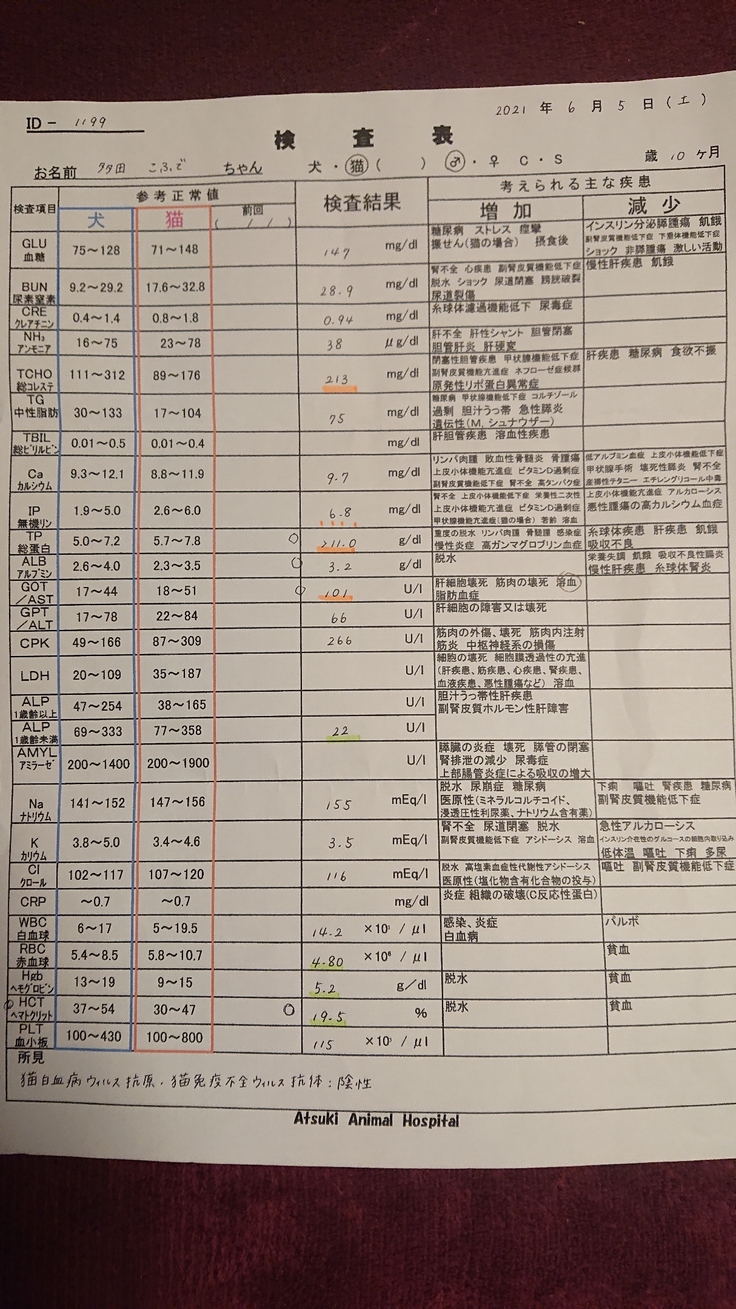 ID - 1199
2021 年 6 月 5 日 (土)
検 査 表
お名前 多田 こふで ちゃん 犬・猫 ( ) ♂・♀ C・S 歳 10 ヶ月
検査項目 参考正常値 検査結果 考えられる主な疾患
犬 猫 前回 ( / / ) 増加 減少
GLU 血糖 75～128 71～148 147 mg/dl 糖尿病 ストレス 痙攣 振せん(猫の場合) 摂食後 インスリン分泌膵腫瘍 飢餓 副腎皮質機能低下症 下垂体機能低下症 ショック 非膵腫瘍 激しい活動
BUN 尿素窒素 9.2～29.2 17.6～32.8 28.9 mg/dl 腎不全 心疾患 副腎皮質機能低下症 脱水 ショック 尿道閉塞 膀胱破裂 尿道裂傷 慢性肝疾患 飢餓
CRE クレアチニン 0.4～1.4 0.8～1.8 0.94 mg/dl 糸球体濾過機能低下 尿毒症
NH₃ アンモニア 16～75 23～78 38 μg/dl 肝不全 肝性シャント 胆管閉塞 胆管肝炎 肝硬変
TCHO 総コレステ 111～312 89～176 213 mg/dl 閉塞性胆管疾患 甲状腺機能低下症 副腎皮質機能亢進症 ネフローゼ症候群 原発性リポ蛋白異常症 肝疾患 糖尿病 食欲不振
TG 中性脂肪 30～133 17～104 75 mg/dl 糖尿病 甲状腺機能低下症 コルチゾール過剰 胆汁うっ帯 急性膵炎 遺伝性(M, シュナウザー)
TBIL 総ビリルビン 0.01～0.5 0.01～0.4 mg/dl 肝胆管疾患 溶血性疾患
Ca カルシウム 9.3～12.1 8.8～11.9 9.7 mg/dl リンパ肉腫 敗血性骨髄炎 骨腫瘍 上皮小体機能亢進症 ビタミンD過剰症 副腎皮質機能低下症 腎不全 高タンパク症 低アルブミン血症 上皮小体機能低下症 甲状腺手術 壊死性膵炎 腎不全 産褥性テタニー エチレングリコール中毒
IP 無機リン 1.9～5.0 2.6～6.0 6.8 mg/dl 腎不全 上皮小体機能低下症 栄養性二次性上皮小体機能亢進症 ビタミンD過剰症 甲状腺機能亢進症(猫の場合) 若齢 溶血 上皮小体機能亢進症 アルカローシス 悪性腫瘍の高カルシウム血症
TP 総蛋白 5.0～7.2 5.7～7.8 >11.0 g/dl 重度の脱水 リンパ肉腫 骨髄腫 感染症 慢性炎症 高ガンマグロブリン血症 糸球体疾患 肝疾患 飢餓 吸収不良
ALB アルブミン 2.6～4.0 2.3～3.5 3.2 g/dl 脱水 栄養失調 飢餓 吸収不良性腸炎 慢性肝疾患 糸球体腎炎
GOT /AST 17～44 18～51 101 U/l 肝細胞壊死 筋肉の壊死 溶血 脂肪血症
GPT /ALT 17～78 22～84 66 U/l 肝細胞の障害又は壊死
CPK 49～166 87～309 266 U/l 筋肉の外傷、壊死 筋肉内注射 筋炎 中枢神経系の損傷
LDH 20～109 35～187 U/l 細胞の壊死 細胞膜透過性の亢進 (肝疾患、筋疾患、心疾患、腎疾患、血液疾患、悪性腫瘍など) 溶血
ALP 1歳齢以上 47～254 38～165 U/l 胆汁うっ帯性肝疾患 副腎皮質ホルモン性肝障害
ALP 1歳齢未満 69～333 77～358 22 U/l
AMYL アミラーゼ 200～1400 200～1900 U/l 膵臓の炎症 壊死 膵管の閉塞 腎排泄の減少 尿毒症 上部腸管炎症による吸収の増大
Na ナトリウム 141～152 147～156 155 mEq/l 脱水 尿崩症 糖尿病 医原性(ミネラルコルチコイド、浸透圧性利尿薬、ナトリウム含有薬) 下痢 嘔吐 腎疾患 糖尿病 副腎皮質機能低下症
K カリウム 3.8～5.0 3.4～4.6 3.5 mEq/l 腎不全 尿道閉塞 脱水 副腎皮質機能低下症 アシドーシス 溶血 急性アルカローシス インスリン介在性のグルコースの細胞内取り込み 低体温 嘔吐 下痢 多尿
Cl クロール 102～117 107～120 116 mEq/l 脱水 高塩素血症性代謝性アシドーシス 医原性(塩化物含有化合物の投与) 嘔吐 副腎皮質機能低下症
CRP ～0.7 ～0.7 mg/dl 炎症 組織の破壊(C反応性蛋白)
WBC 白血球 6～17 5～19.5 14.2 ×10³ / μl 感染、炎症 白血病 パルボ
RBC 赤血球 5.4～8.5 5.8～10.7 4.80 ×10⁶ / μl 貧血
Hgb ヘモグロビン 13～19 9～15 5.2 g/dl 脱水 貧血
HCT ヘマトクリット 37～54 30～47 19.5 % 脱水 貧血
PLT 血小板 100～430 100～800 115 ×10³ / μl
所見
猫白血病ウィルス抗原・猫免疫不全ウィルス抗体：陰性
Atsuki Animal Hospital